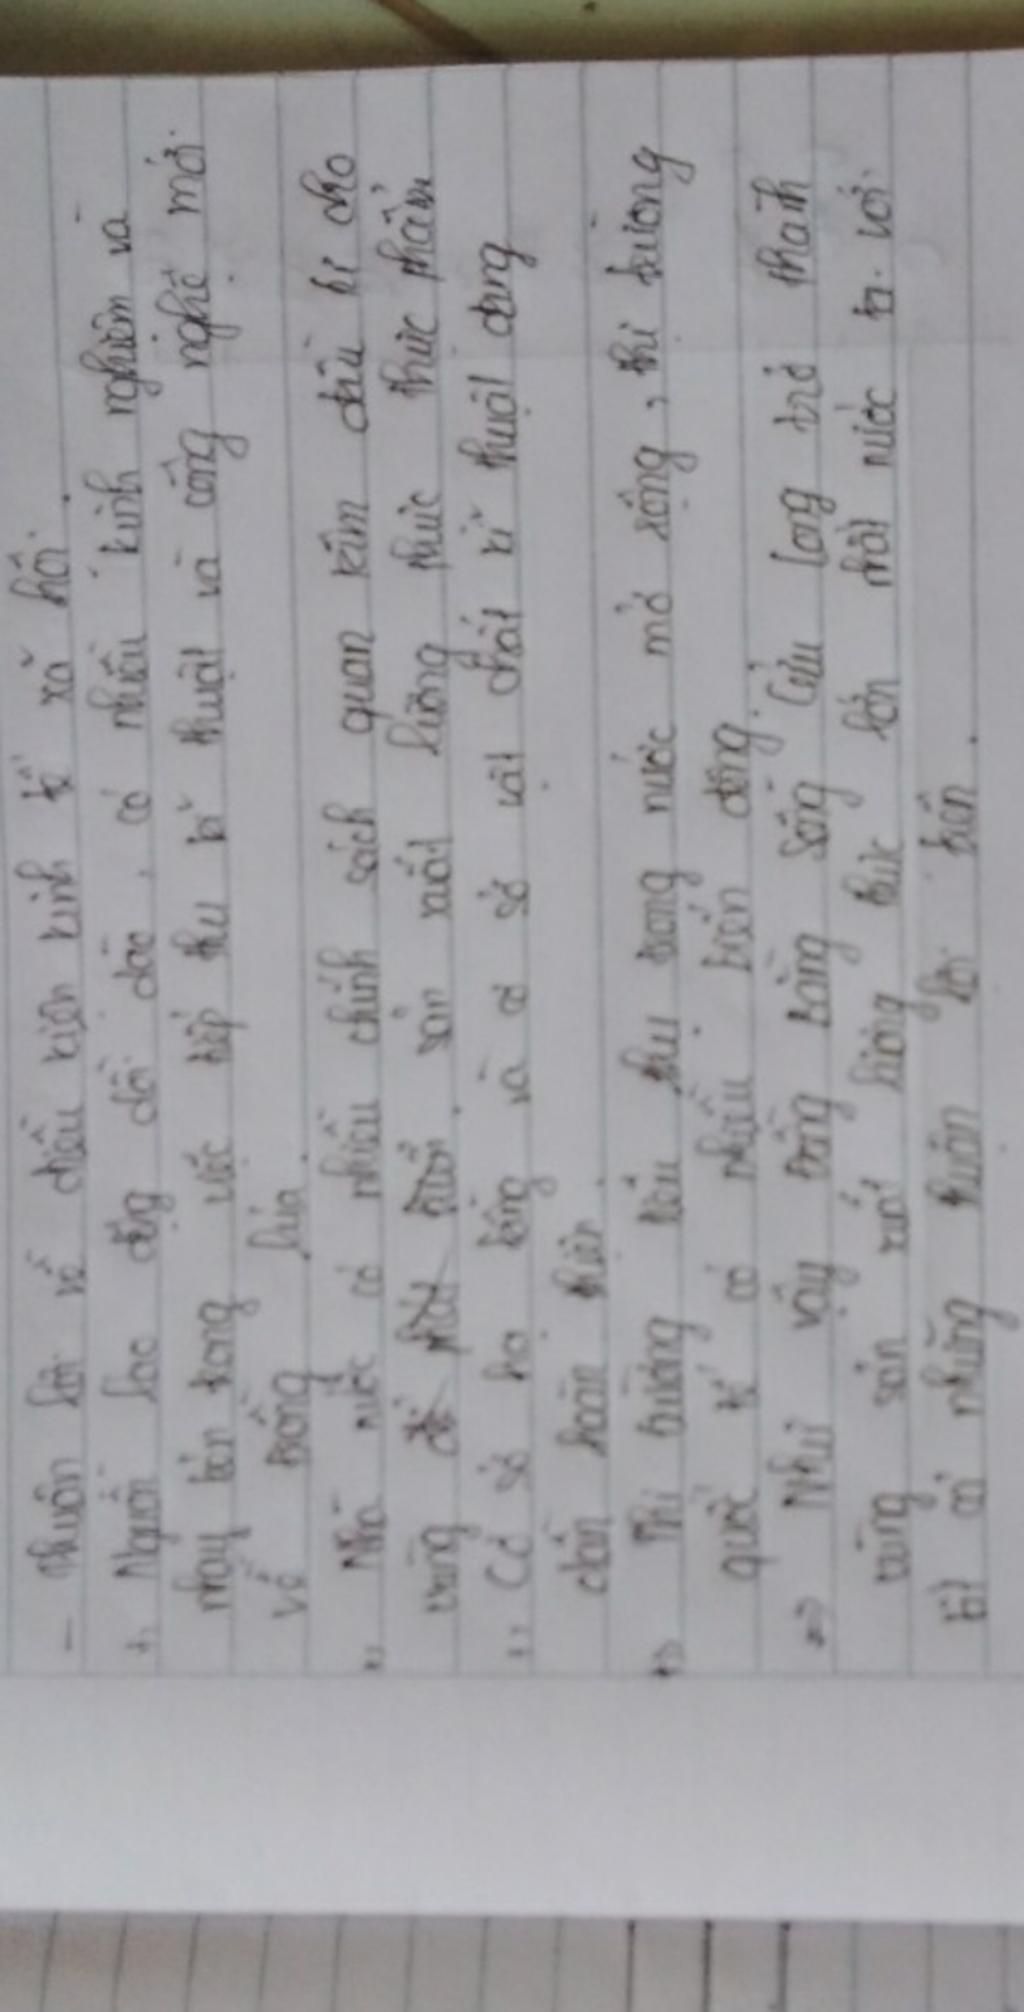 - Thuận lợi về điều kiện kinh tế xã hội.
+, Nguồn lao động dồi dào, có nhiều kinh nghiệm và
nhạy bén trong việc tiếp thu kĩ thuật và công nghệ mới.
về trồng lúa.
+, Nhà nước có nhiều chính sách quan tâm đầu tư cho
vùng để phát triển sản xuất lương thực thực phẩm
+, Cơ sở hạ tầng và cơ sở vật chất kĩ thuật đang
dần hoàn thiện.
+, Thị trường tiêu thụ trong nước mở rộng, thị trường
quốc tế có nhiều biến động.
=> Như vậy Đồng bằng Sông Cửu Long trở thành
vùng sản xuất lương thực lớn nhất nước ta. Với
tất cả những thuận lợi trên.